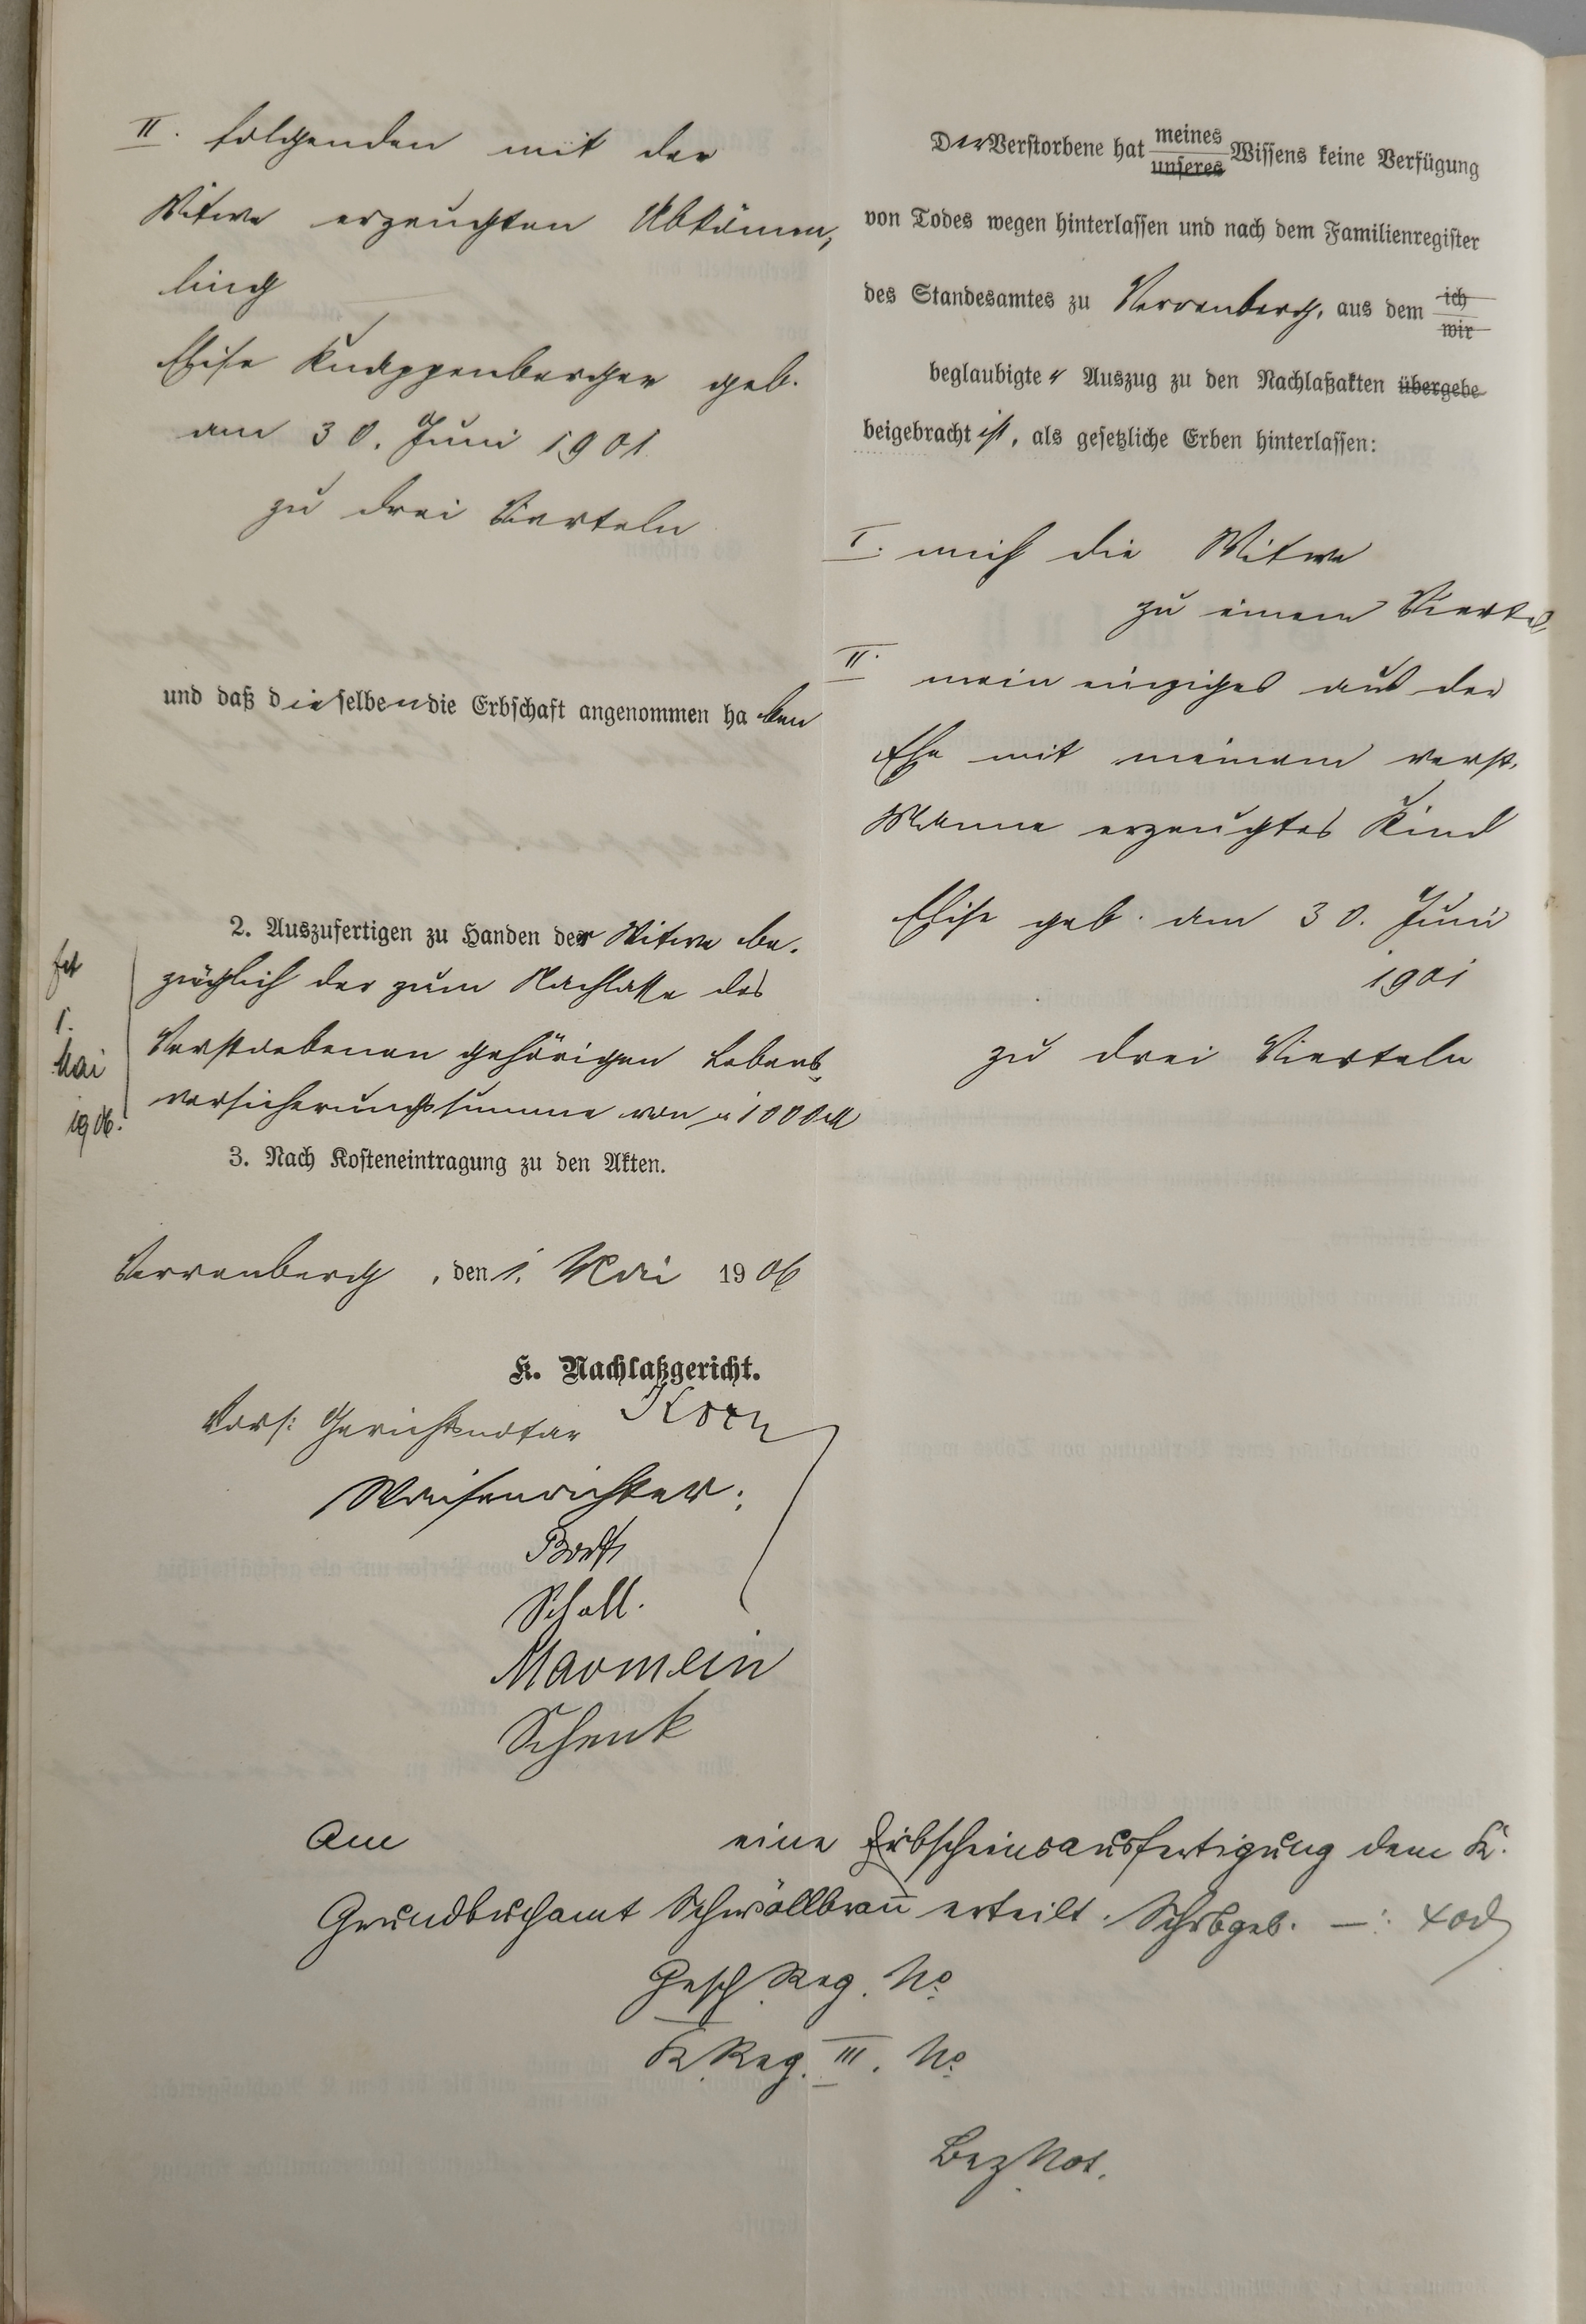 II. folgenden mit der
Witwe erzeugten Abkömm-
ling
Elise Knappenberger geb.
am 30. Juni 1901
zu drei Vierteln
und daß dieselben die Erbschaft angenommen haben
2. Auszufertigen zu Handen der Witwe be-
züglich der zum Nachlasse des
Verstorbenen gehörigen Lebens-
versicherungssumme von 1000 M
1.
Mai
1906.
3. Nach Kosteneintragung zu den Akten.
Verrenberg, den 1. Mai 1906
K. Nachlaßgericht.
Vors: Gerichtsnotar Korn
Waisenrichter:
Scholl.
Marmlein
Schenk
Der Verstorbene hat meines
unseres Wissens keine Verfügung
von Todes wegen hinterlassen und nach dem Familienregister
des Standesamtes zu Verrenberg, aus dem ich
wir
beglaubigter Auszug zu den Nachlaßakten übergebe
beigebracht ist, als gesetzliche Erben hinterlassen:
I. mich die Witwe
zu einem Viertel
II. mein einziges aus der
Ehe mit meinem verst.
Manne erzeugtes Kind
Elise geb. am 30. Juni
1901
zu drei Vierteln
Am eine Erbscheinsausfertigung dem K.
Grundbuchamt Schwöllbron̄ erteilt. Schrbgeb. —: 40 d
Gesch. Reg. No
K. Reg. III. No
Bez Not.